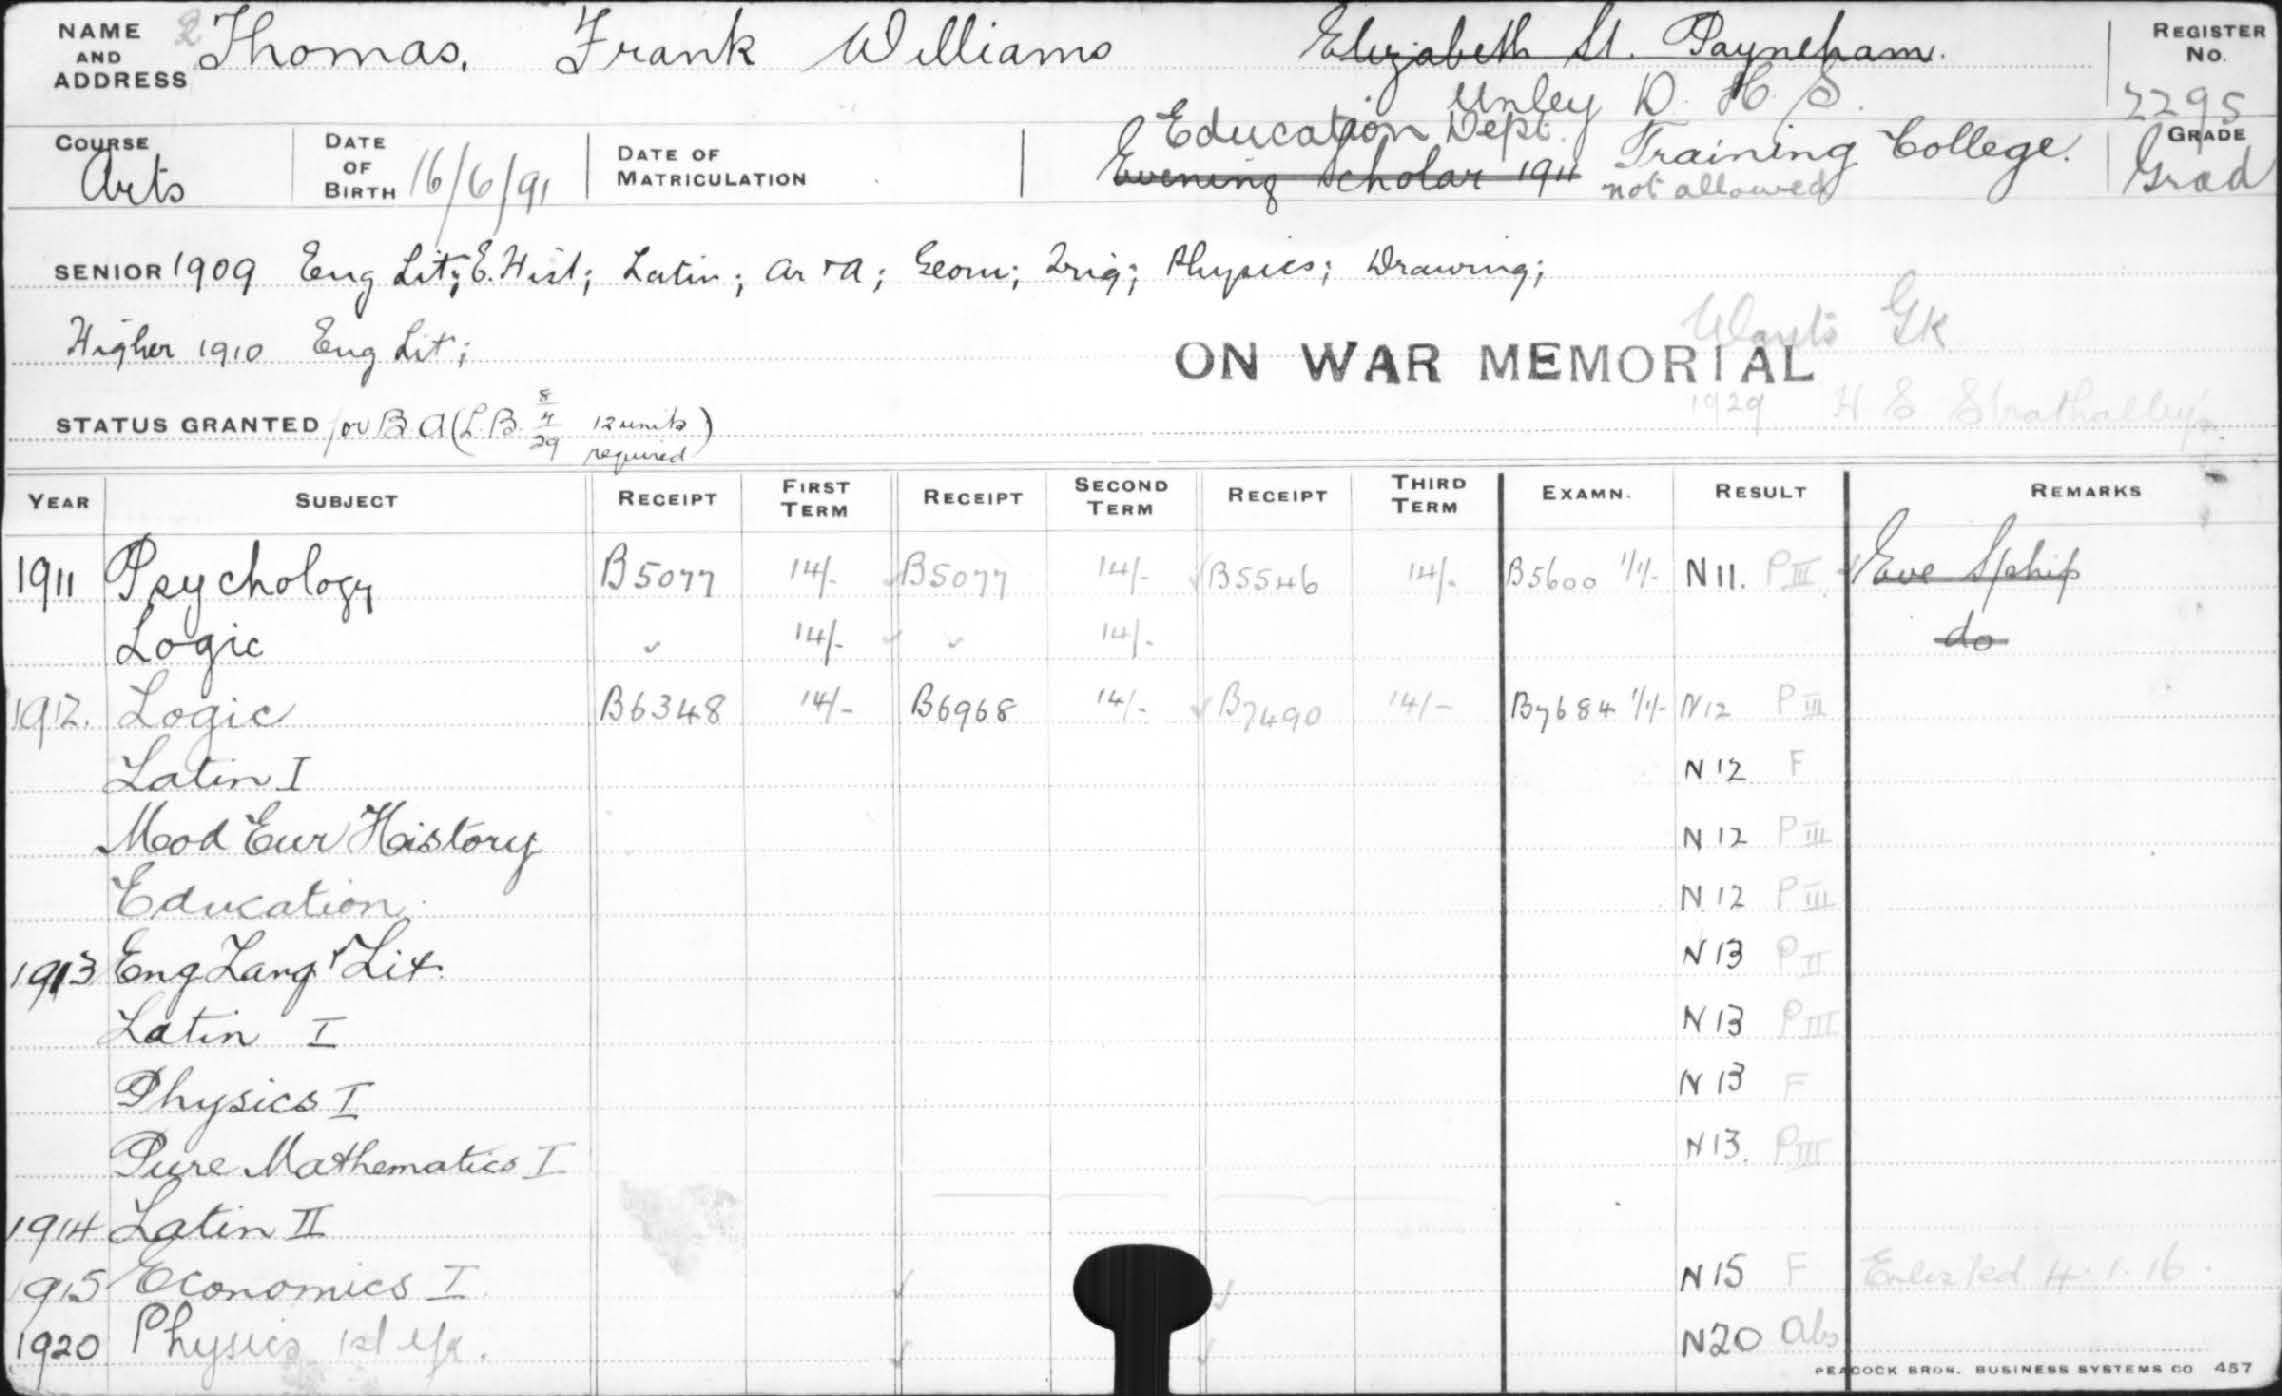 NAME AND ADDRESS 2 Thomas, Frank Williams Elizabeth St. Payneham. REGISTER No. 2295
Unley D. H. S.
Education Dept. Training College.
COURSE Arts DATE OF BIRTH 16/6/91 DATE OF MATRICULATION Evening Scholar 1911 not allowed GRADE Grad
SENIOR 1909 Eng Lit; E. Hist; Latin; Ar + A; Geom; Trig; Physics; Drawing;
Higher 1910 Eng Lit;
Wants GK
ON WAR MEMORIAL
1929 H S Strathalbyn
STATUS GRANTED for B A (L.B. 8/4/29 12 units required)
YEAR SUBJECT RECEIPT FIRST TERM RECEIPT SECOND TERM RECEIPT THIRD TERM EXAMN. RESULT REMARKS
1911 Psychology B5077 14/- B5077 14/- B5546 14/- B5600 1/1/- N 11. P III Eve S/ship
Logic 14/- 14/- do
1912. Logic B6348 14/- B6968 14/- B7490 14/- B7684 1/1/- N 12 P III
Latin I N 12 F
Mod Eur History N 12 P III
Education N 12 P III
1913 Eng Lang + Lit. N 13 P II
Latin I N 13 P III
Physics I N 13 F
Pure Mathematics I N 13. P III
1914 Latin II
1915 Economics I N 15 F Enlisted 4.1.16.
1920 Physics 1st yr. N20 Abs
PEACOCK BROS. BUSINESS SYSTEMS CO 457